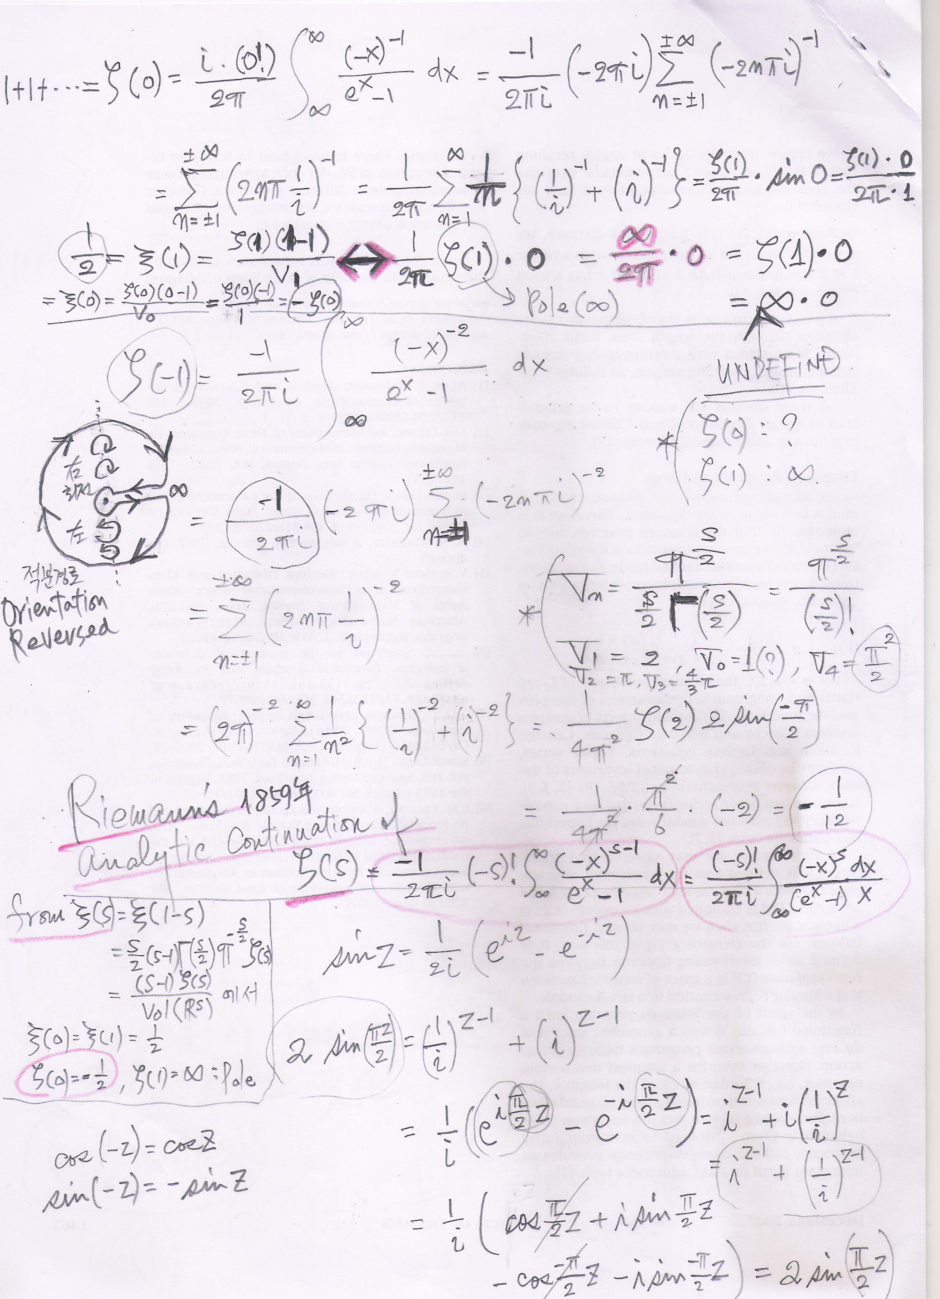 1+1+⋯=ζ(0)= i·(0!)/2π ∫_∞^∞ (-x)^-1/(e^x-1) dx = -1/2πi (-2πi) Σ_{n=±1}^{±∞} (-2nπi)^-1
= Σ_{n=±1}^{±∞} (2nπ 1/i)^-1 = 1/2π Σ_{n=1}^∞ 1/n {(1/i)^-1 + (i)^-1} = ζ(1)/2π · sin0 = ζ(1)·0/2π·1
1/2 = ξ(1) = ζ(1)(1-1)/V_1 ↔ 1/2π ζ(1)·0 = ∞/2π · 0 = ζ(1)·0
= ξ(0) = ζ(0)(0-1)/V_0 = ζ(0)(-1)/1 = -ζ(0)
Pole(∞)
= ∞·0
UNDEFINE
ζ(-1) = -1/2πi ∫_∞^∞ (-x)^-2/(e^x-1) dx
* ζ(0) : ?
ζ(1) : ∞
左
회전
∞
左
적분경로
Orientation
Reversed
= -1/2πi (-2πi) Σ_{n=±1}^{±∞} (-2nπi)^-2
* V_n = π^{s/2} / (s/2 Γ(s/2)) = π^{s/2} / (s/2)!
V_1 = 2, V_0 = 1(?), V_4 = π^2/2
V_2 = π, V_3 = 4/3 π
= Σ_{n=±1}^{±∞} (2nπ 1/i)^-2
= (2π)^-2 Σ_{n=1}^∞ 1/n^2 {(1/i)^-2 + (i)^-2} 1/4π^2 ζ(2) 2 sin(-π/2)
= 1/4π^2 π^2/6 (-2) = -1/12
Riemann's 1859年
Analytic Continuation of
ζ(s) = -1/2πi (-s)! ∫_∞^∞ (-x)^{s-1}/(e^x-1) dx = (-s)!/2πi ∫_∞^∞ (-x)^s dx/(e^x-1) x
from ξ(s) = ξ(1-s)
= s/2 (s-1) Γ(s/2) π^{-s/2} ζ(s)
= (s-1) ζ(s) / Vol(R^s) 에서
ξ(0) = ξ(1) = 1/2
ζ(0) = -1/2, ζ(1) = ∞ : Pole
cos(-z) = cosz
sin(-z) = -sinz
sinz = 1/2i (e^{iz} - e^{-iz})
2 sin(πz/2) = (1/i)^{z-1} + (i)^{z-1}
= 1/i (e^{iπ/2 z} - e^{-iπ/2 z}) = i^{z-1} + i(1/i)^z
= i^{z-1} + (1/i)^{z-1}
= 1/i (cos π/2 z + i sin π/2 z
- cos -π/2 z - i sin -π/2 z) = 2 sin(π/2 z)